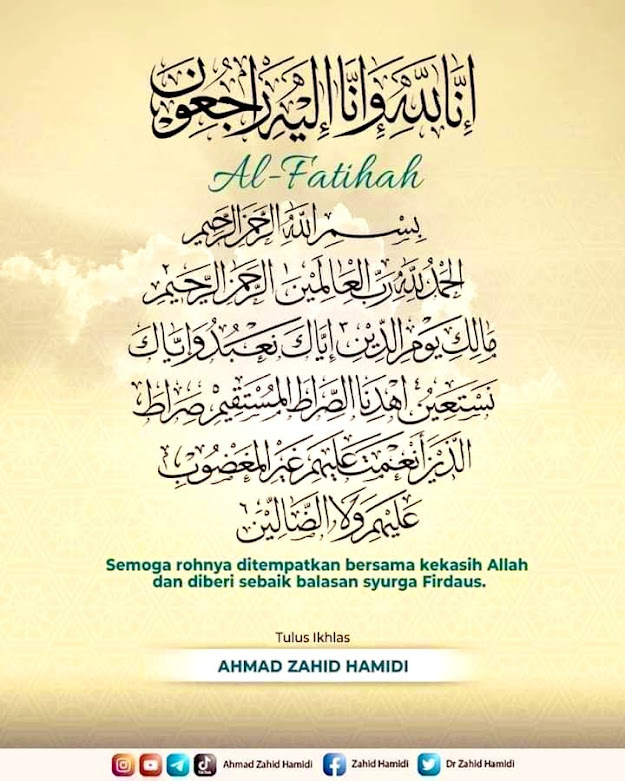 إِنَّا لِلَّهِ وَإِنَّا إِلَيْهِ رَاجِعُونَ
Al-Fatihah
بِسْمِ اللَّهِ الرَّحْمَنِ الرَّحِيمِ
الْحَمْدُ لِلَّهِ رَبِّ الْعَالَمِينَ الرَّحْمَنِ الرَّحِيمِ
مَالِكِ يَوْمِ الدِّينِ إِيَّاكَ نَعْبُدُ وَإِيَّاكَ
نَسْتَعِينُ اهْدِنَا الصِّرَاطَ الْمُسْتَقِيمَ صِرَاطَ
الَّذِينَ أَنْعَمْتَ عَلَيْهِمْ غَيْرِ الْمَغْضُوبِ
عَلَيْهِمْ وَلَا الضَّالِّينَ
Semoga rohnya ditempatkan bersama kekasih Allah
dan diberi sebaik balasan syurga Firdaus.
Tulus Ikhlas
AHMAD ZAHID HAMIDI
Ahmad Zahid Hamidi Zahid Hamidi Dr Zahid Hamidi